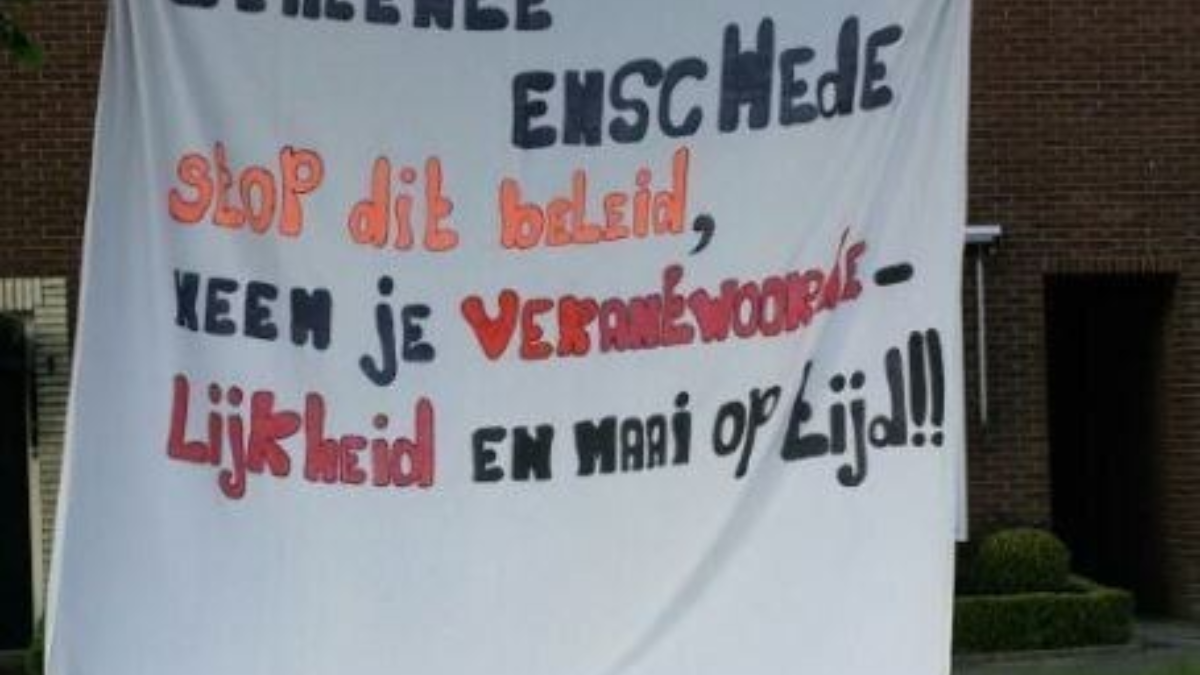 GEMEENTE
ENSCHEDE
stop dit beleid,
NEEM je VERANtWOORdE-
Lijkheid EN MAAi op tijd!!